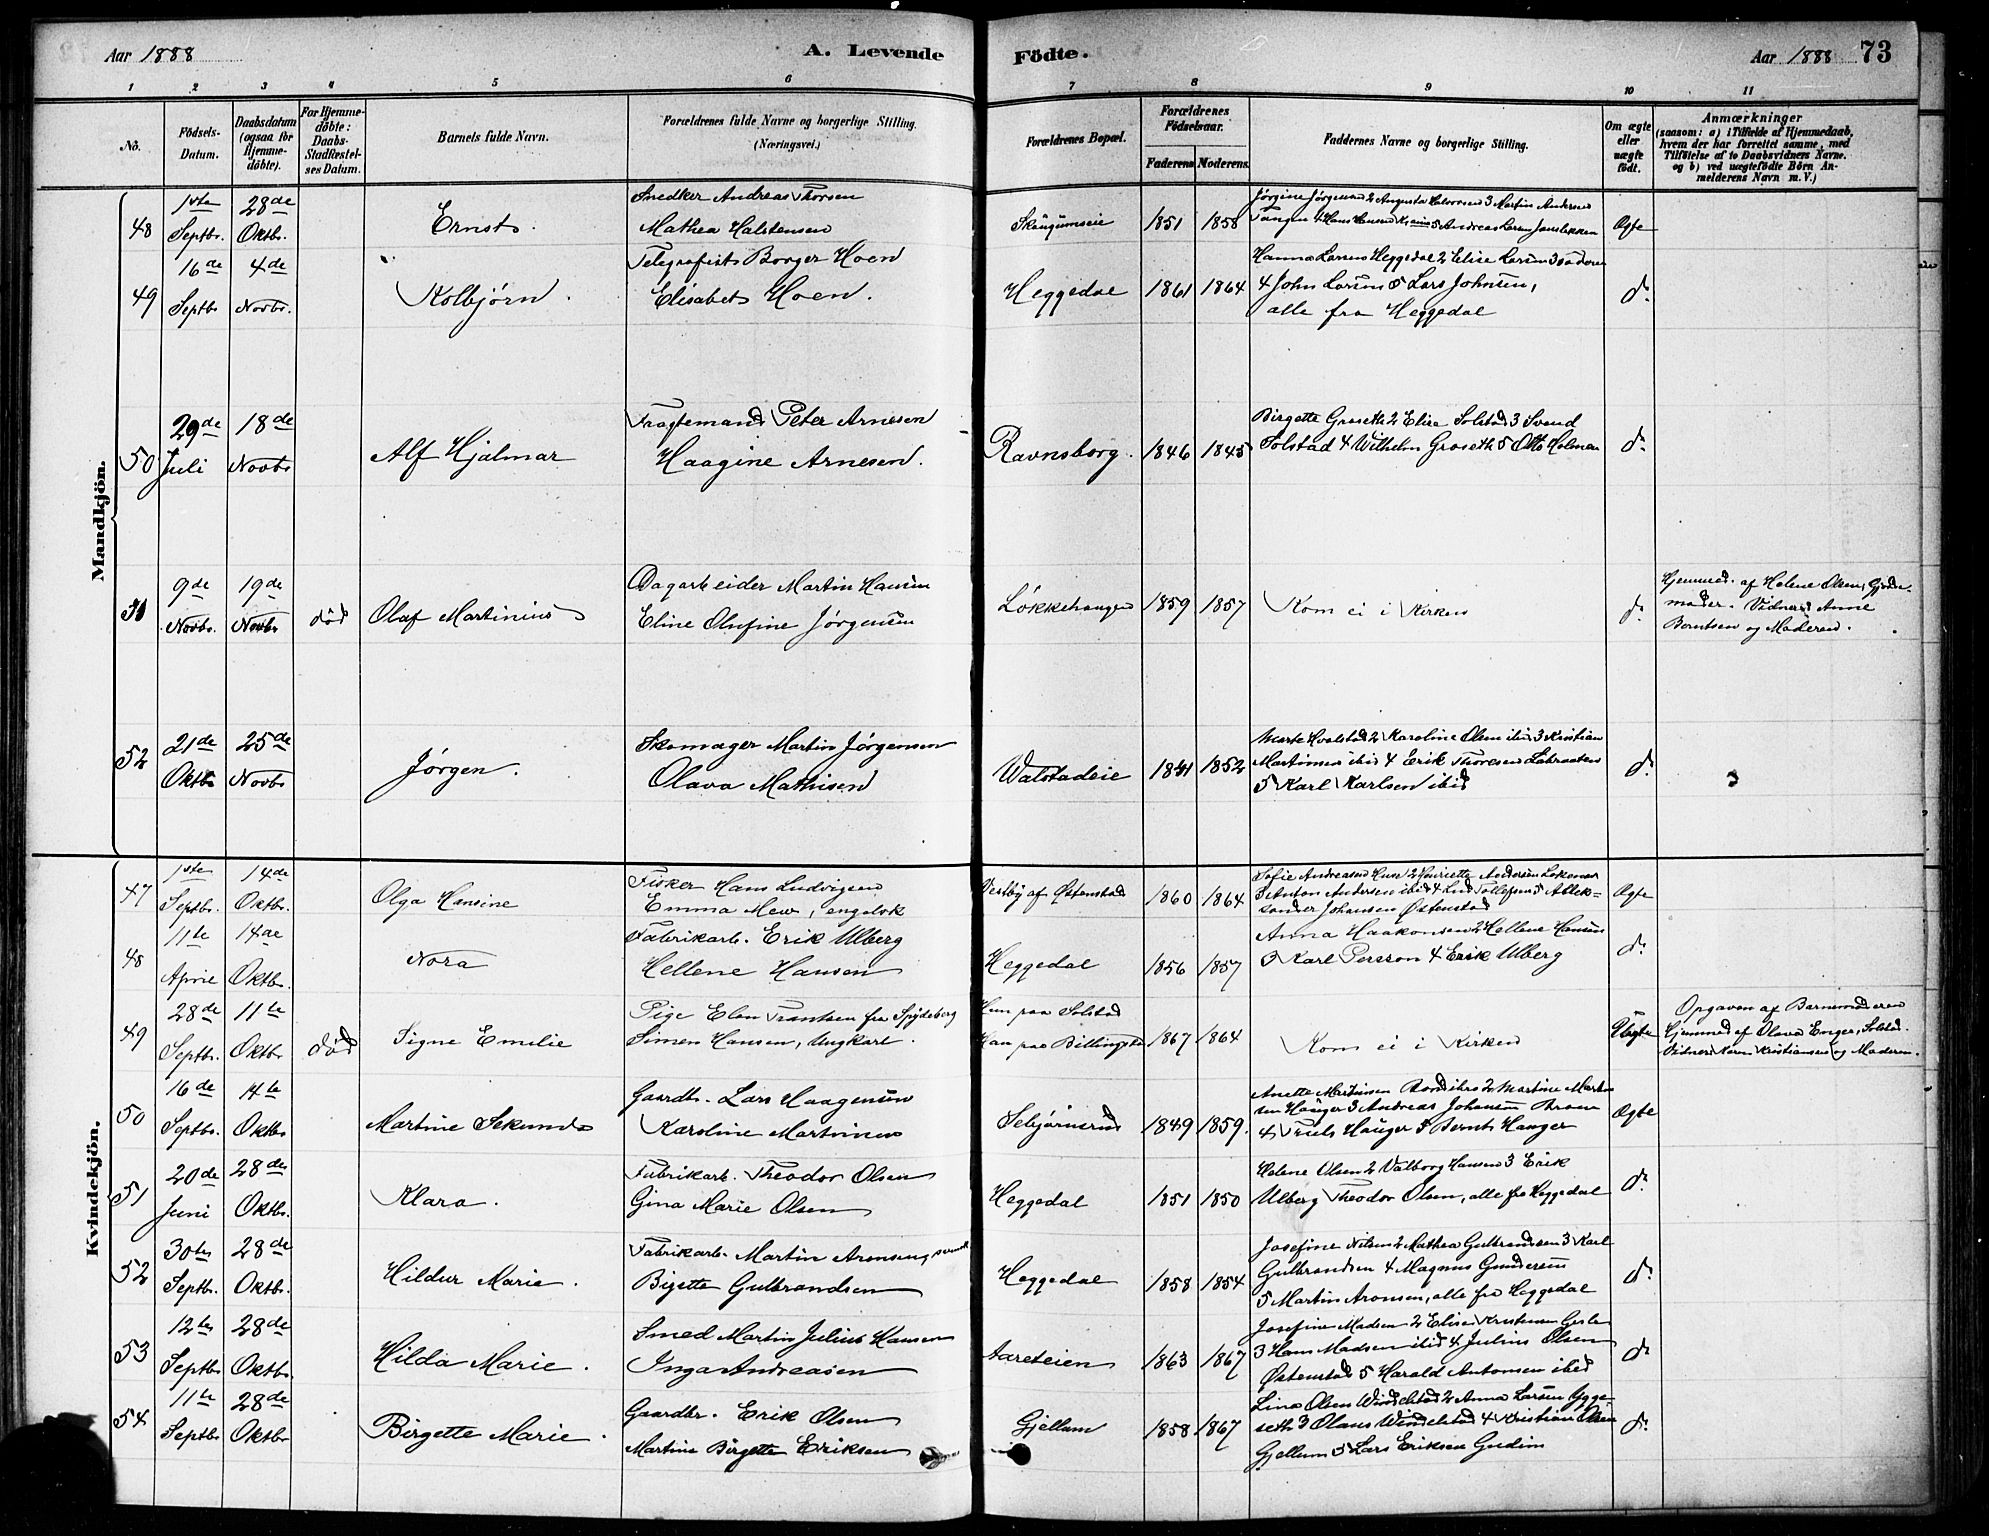 Aar 1888
A. Levende
Födte.
Aar 1888 73
1 2 3 4 5 6
7 8 9 10 11
No.
Födsels-Datum.
Daabsdatum (ogsaa for Hjemme-döbte).
For Hjemme-döbte: Daabs-Stadfæstel-ses Datum.
Barnets fulde Navn.
Forældrenes fulde Navne og borgerlige Stilling. (Næringsvei.)
Forældrenes Bopæl.
Forældrenes Födselsaar.
Faderens Moderens.
Faddernes Navne og borgerlige Stilling.
Om ægte eller uægte födt.
Anmærkninger
(saasom: a) i Tilfælde af Hjemmedaab,
hvem der har forrettet samme, med
Tilföielse af to Daabsvidners Navne.
og b) ved uægtefödte Börn An-
melderens Navn m. V.)
Mandkjön.
48 1ste Septbr. 28de Oktbr. Ernst.
Snedker Andreas Thorsen
Mathea Halstensen
Skaugumseie 1851 1858
Jørgine Jørgensen 2 Augusta Halvorsen 3 Martin Andersen
Tangen 4 Hans Hansen 5 Andreas Larsen
Ægte
49 16de Septbr 4de Novbr. Kolbjørn.
Telegrafist Borger Hoen
Elisabet Hoen.
Heggedal 1861 1864
Hanna Larsen Heggedal 2 Elise Larsen 3 Faderen
4 John Larsen 5 Lars Johnsen,
alle fra Heggedal
do
50 29de Juli 18de Novbr Alf Hjalmar
Fragtemand Peter Arnesen
Haagine Arnesen.
Ravnsborg. 1846 1845
Birgette Groseth 2 Elise Solstad 3 Svend
Solstad 4 Wilhelm Groseth 5 Otto Holmen
do
51 9de Novbr. 19de Novbr død Olaf Martinius
Dagarbeider Martin Hansen
Eline Olufine Jørgensen
Løkkehaugen 1859 1857
Kom ei i Kirken
do
Hjemmed. af Helene Olsen, Gjorde-
moder. Vidner: Anne
Berntsen og Moderen.
52 21de Oktbr 25de Novbr Jørgen.
Skomager Martin Jørgensen
Olava Mathisen
Walstadeie 1841 1852
Marte Hvalstad 2 Karoline Olsen ibid 3 Kristian
Martinsen ibid 4 Erik Thoresen Labraaten
5 Karl Karlsen ibid
do
Kvindekjön.
47 1ste Septbr. 14de Oktbr. Olga Hansine
Fisker Hans Ludvigsen
Emma Mew, engelsk
Vestby af Østenstad 1860 1864
Sofie Andreasen 2 Henriette Andersen
Andersen ibid 4 Tollefsen 5 Allek-
sander Johansen Østenstad
Ægte
48 11te April 14de Oktbr. Nora
Fabrikarb. Erik Ulberg
Hellene Hansen
Heggedal 1856 1857
Anna Haakonsen 2 Hellene Hansen
3 Karl Persson 4 Erik Ulberg
do
49 28de Septbr. 11te Oktbr død Signe Emilie
Pige Elen Frantsen fra Spydeberg
Simen Hansen, Ungkarl.
Hun paa Solstad
Han paa Billingstad 1867 1864
Kom ei i Kirken
Uægte
Opgaven af Barnemoderen
Hjemmed af Olava Enger, Solstad.
Vidner: Karen Kristiansen og Moderen.
50 16de Septbr. 14te Oktbr Martine Sekunda
Gaardbr. Lars Haagensen
Karoline Martinsen
Sebjørnsrud 1849 1859.
Anette Martinsen 2 Martine Martin
sen Hauger 3 Andreas Johansen
4 Truls Hauger 5 Bernt Hauger
Ægte
51 20de Juni 28de Oktbr. Klara.
Fabrikarb. Theodor Olsen
Gina Marie Olsen
Heggedal 1851 1850
Helene Olsen 2 Valborg Hansen 3 Erik
Ulberg Theodor Olsen, alle fra Heggedal
do
52 30te Septbr. 28de Oktbr. Hildur Marie.
Fabrikarb. Martin Aronsen, svensk
Birgette Gulbrandsen
Heggedal 1858 1854
Josefine Nilsen 2 Mathea Gulbrandsen 3 Karl
Gulbrandsen 4 Magnus Gundersen
5 Martin Aronsen, alle fra Heggedal
do
53 12te Septbr 28de Oktbr. Hilda Marie.
Smed Martin Julius Hansen
Inga Andreasen
Aarsteien 1863 1867
Josefine Madsen 2 Elise Kristensen
3 Hans Madsen ibid 4 Julius Olsen
Østenstad 5 Harald Antonsen ibid
do
54 11te Septbr 28de Oktbr Birgette Marie.
Gaardbr. Erik Olsen
Martine Birgette Eriksen
Gjellum 1858 1867
Lina Olsen Windelstad 2 Anna Larsen Ygge-
seth 3 Olaus Windelstad 4 Kristian Olsen
Gjellum 5 Lars Eriksen Gudim
do